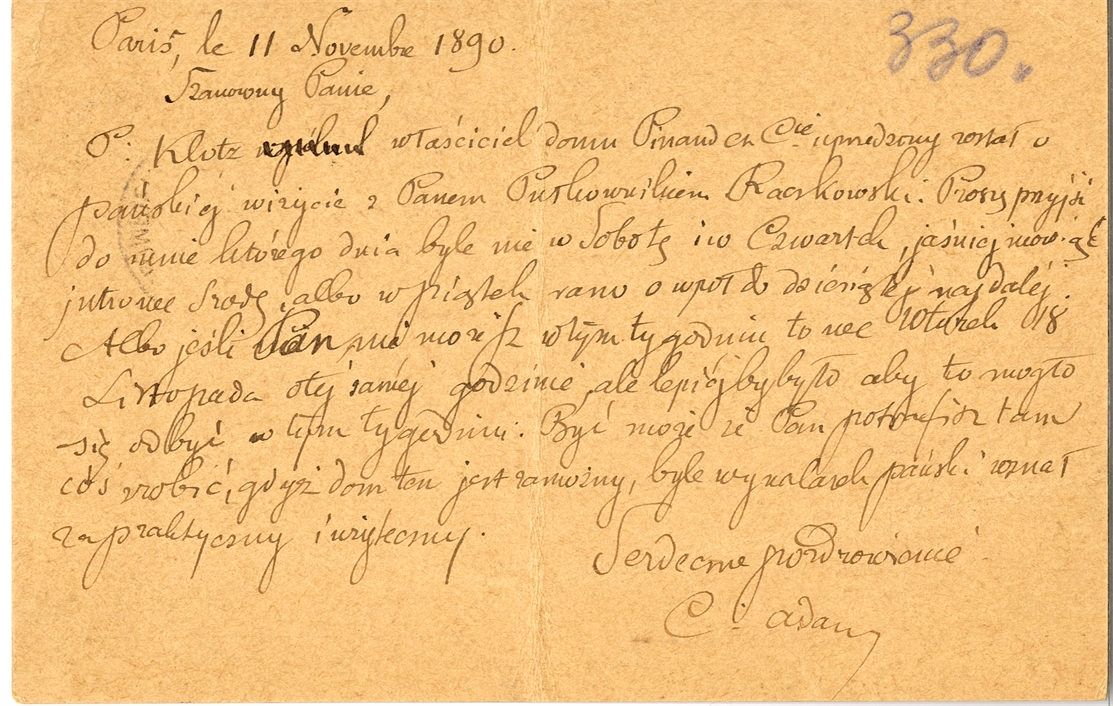 330.
Paris, le 11 Novembre 1890.
Szanowny Panie,
P. Klotz właściciel domu Pinaud et Cie uprzedzony został o
pańskiej wizycie z Panem Pułkownikiem Raczkowski. Proszę przyjść
do mnie którego dnia byle nie w Sobotę i w Czwartek, jaśniej mówiąc
jutro we Środę, albo w piątek rano o wpół do dziesiątej najdalej.
Albo jeśli Pan nie możesz w tym tygodniu to we Wtorek 18
Listopada o tej samej godzinie, ale lepiej by było aby to mogło
się odbyć w tym tygodniu. Być może że Pan potrafisz tam
coś zrobić, gdyż dom ten jest zamożny, byle wynalazek pański uznał
za praktyczny i użyteczny.
Serdeczne pozdrowienie
C. Adam